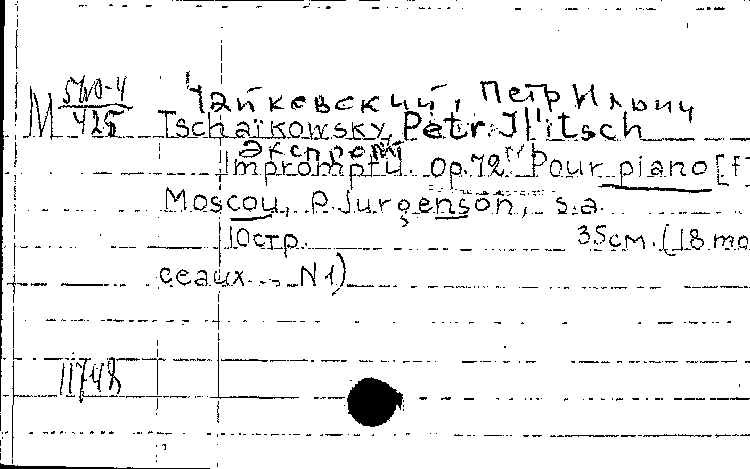 Чайковский, Петр Ильич
М 5Ф0-4/425
Tschaïkowsky, Petr Il'itsch
Экспромт
Impromptu. op.72 Pour piano [f
Moscou, P. Jurgenson, s.a.
10стр. 35см. (18 mo
ceaux. - N1)
11748